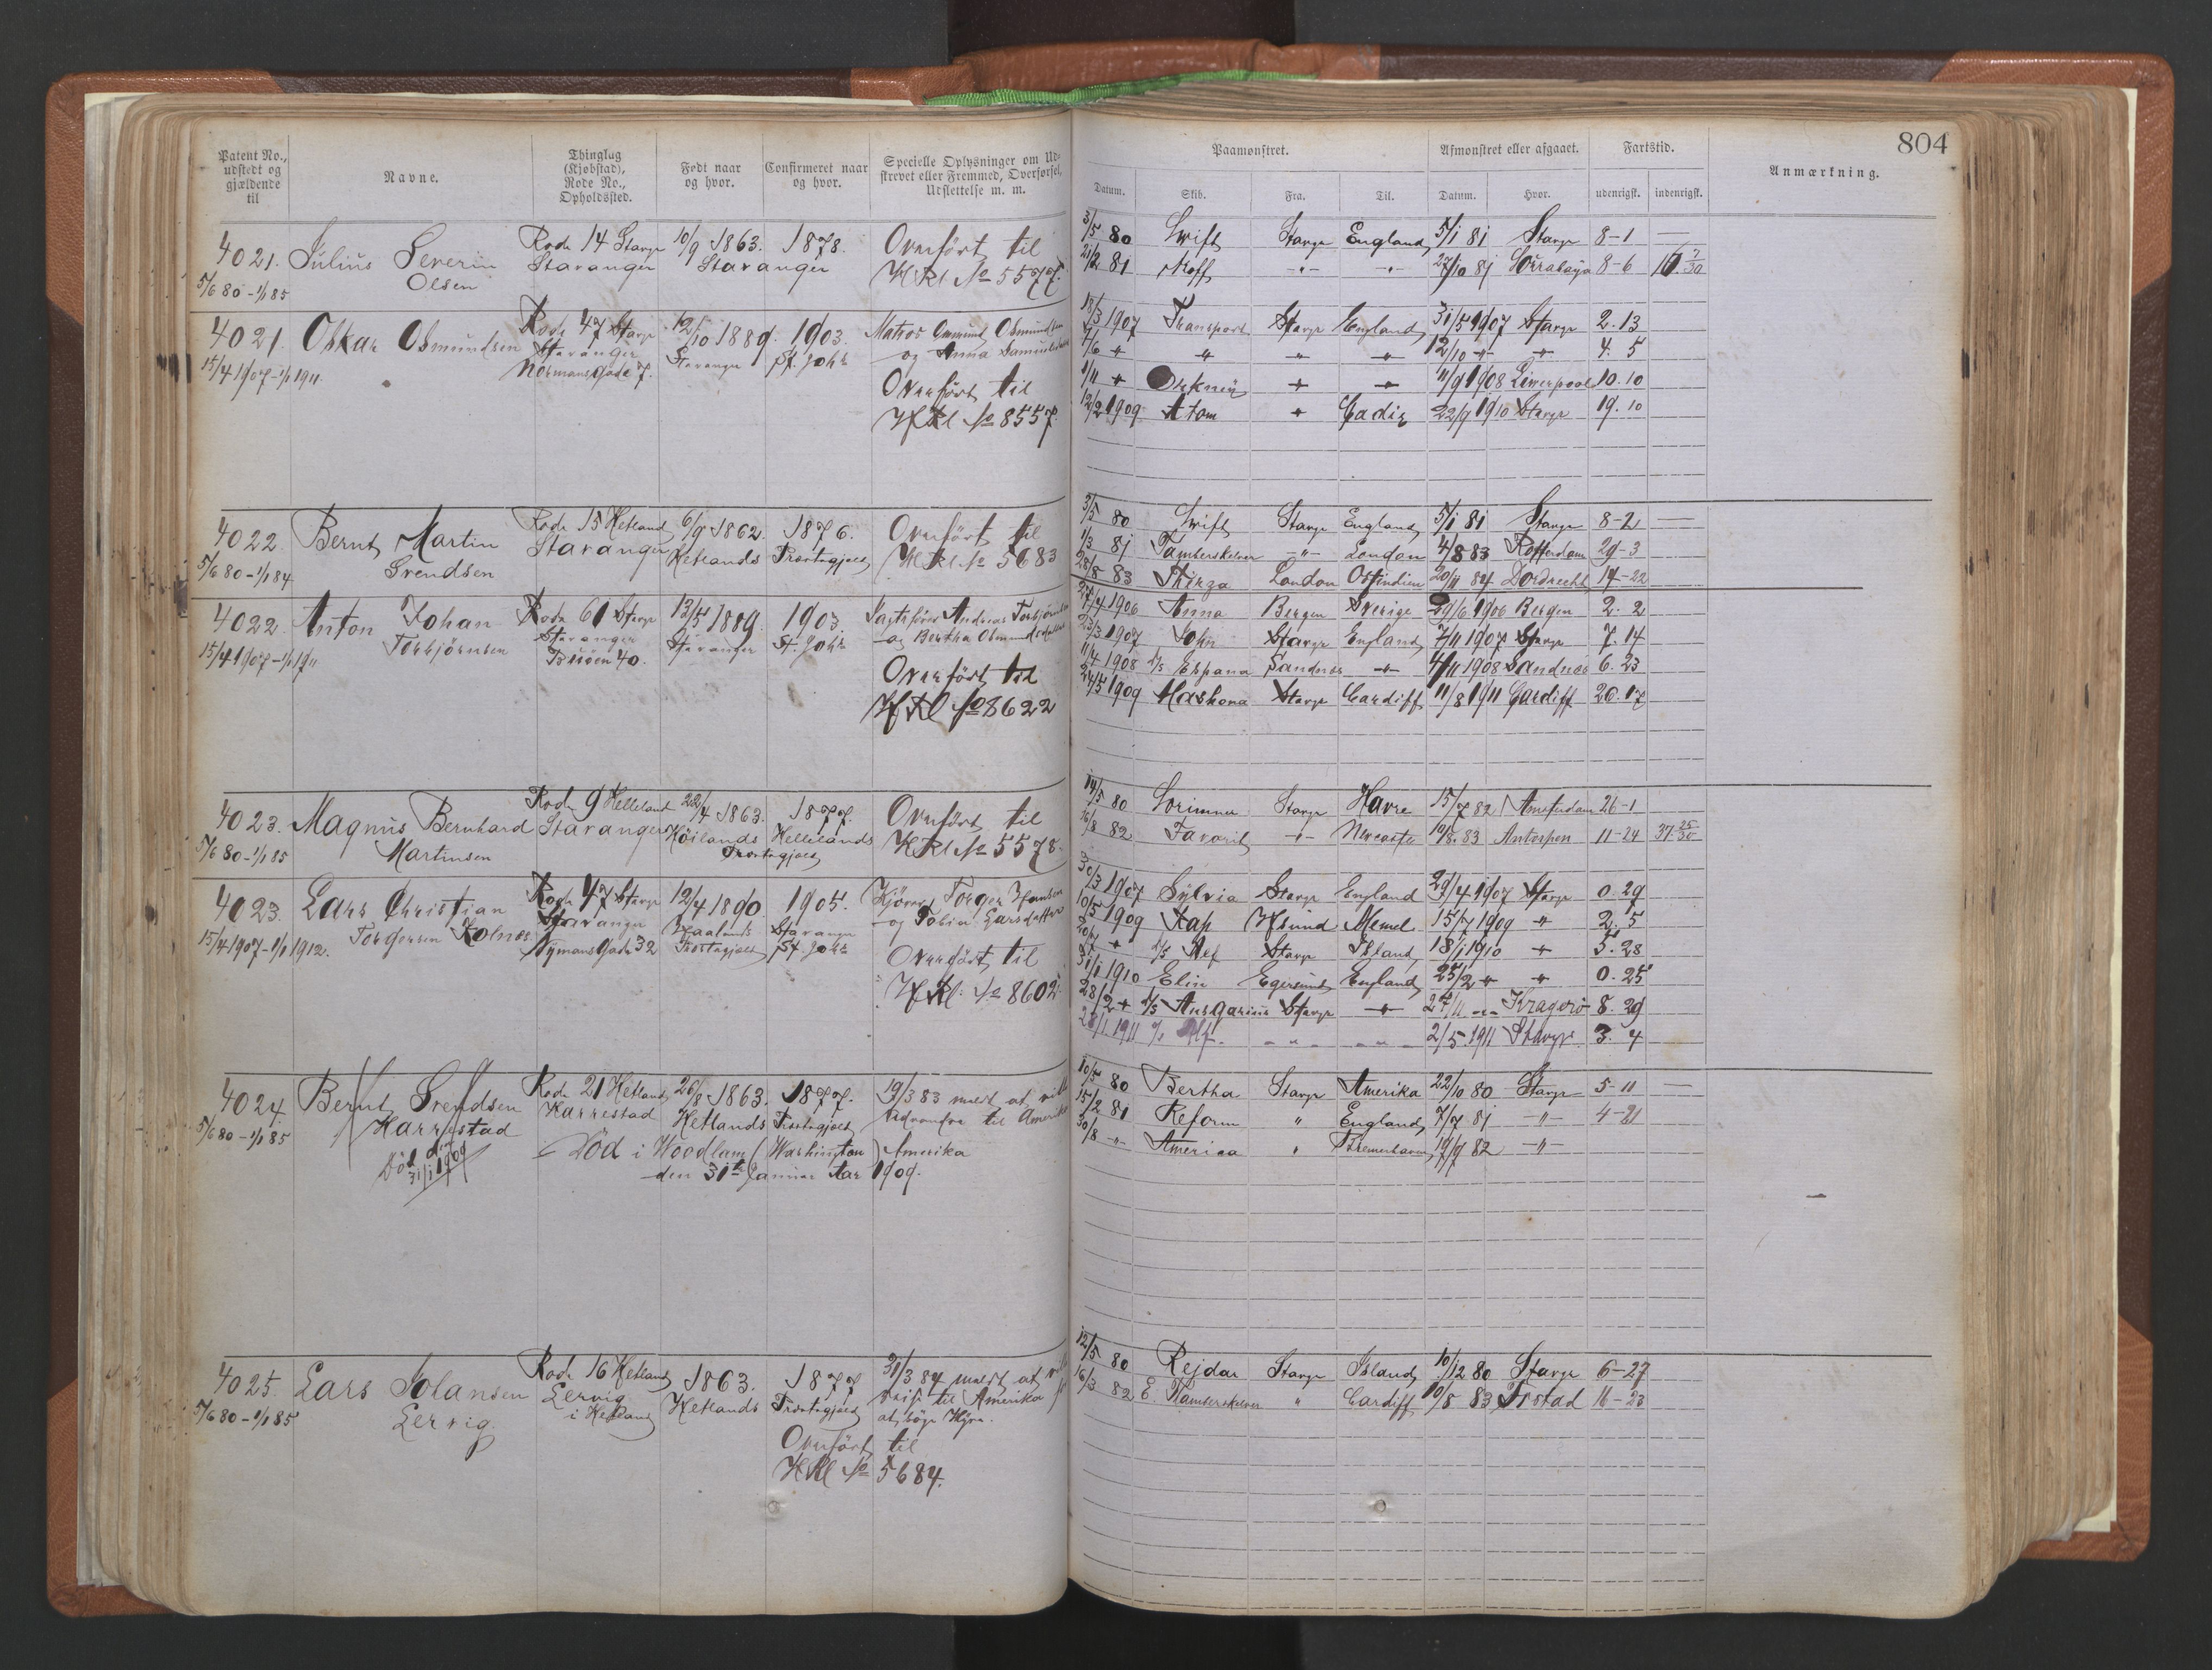 804
Patent No., udstedt og gjældende til
Navne.
Thinglag (Kjøbstad), Rode No., Opholdssted.
Født naar og hvor.
Confirmeret naar og hvor.
Specielle Oplysninger om Udstrevet eller Fremmed, Overførsel, Udslettelse m. m.
Paamønstret.
Datum.
Skib.
Fra.
Til.
Afmønstret eller afgaaet.
Datum.
Hvor.
Fartstid.
udenrigst.
indenrigst.
Anmærkning.
4021. Julius Severin Rode 14 Stavgr 10/9 1863. 1878. Overført til
5/6 80 - 1/1 85 Olsen Stavanger Stavanger HRl No 5577.
3/5 80 Swift Stavgr England 5/1 81 Stavgr 8-1
21/2 81 27/10 81 Sorrabaya 8-6
4021. Oskar Osmundsen Rode 47 Stavgr 12/10 1889. 1903. Matros Osmund Osmundsen
15/4 1907 - 1/1 1911. Stavanger Stavanger St. Johs og Anna
Normansgade 7.
Overført til
HRl No 8557.
18/3 1907 Transport Stavgr England 31/5 1907 Stavgr 2. 13
7/6 " " " " 12/10 " " 4. 5
1/11 " Orkney " " 11/9 1908 Liverpool 10. 10
12/2 1909 Atom " Cadiz 22/9 1910 Stavgr 19. 10
4022. Bernt Martin Rode 15 Hetland 6/9 1862. 1876. Overført til
5/6 80 - 1/1 84 Svendsen Stavanger Hetlands Præstegjeld HRl No 5683
3/5 80 Swift Stavgr England 5/1 81 Stavgr 8-2
1/3 81 Tamberskelver -"- London 4/8 83 Rotterdam 29-3
28/8 83 Thirza London Ostindien 20/11 84 Dordrecht 14-22
4022. Anton Johan Rode 61 Stavgr 13/5 1889. 1903. Jagtfører Andreas Torbjörnsen
15/4 1907 - 1/1 1911 Torbjörnsen Stavanger Stavanger St. Johs og Bertha
Buöen 40.
Overført til
HRl No 8622
27/4 1906 Anna Bergen Sverige 29/6 1906 Bergen 2. 2
23/3 1907 John Stavgr England 7/11 1907 Stavgr 7. 14
11/4 1908 S/S Espana Sandnes " 4/11 1908 Sandnes 6. 23
24/5 1909 Mashona Stavgr Cardiff 11/8 1911 Cardiff 26. 17
4023. Magnus Bernhard Rode 9 Helleland 22/4 1863. 1877. Overført til
5/6 80 - 1/1 85 Martinsen Stavanger Höilands Hellelands Præstegjeld HRl No 5578.
14/5 80 Lorimer Stavgr Havre 15/7 82 Amsterdam 26-1
16/8 82 Favorit -"- Newcastle 10/8 83 Antverpen 11-24 37 25/30
4023. Lars Christian Rode 47 Stavgr 12/4 1890. 1905. Kjörer Torger Hansen
15/4 1907 - 1/1 1912. Torgersen Kolnes Stavanger Haalands Præstegjeld Stavanger St. Johs og Tobia Larsdatter
Nymansgade 32
Overført til
HRl. No 8602.
30/3 1907 Sylvia Stavgr England 29/4 1907 Stavgr 0. 29
10/5 1909 Kap Memel 15/7 1909 " 2. 5
20/7 " S/S Ref Stavgr Island 18/1 1910 " 5. 28
31/1 1910 Elin Egersund England 25/2 " " 0. 25
28/2 " S/S Ansgarius Stavgr " 27/11 Kragerö 8. 29
28/1 1911 S/S Alf. " " 2/5. 1911 Stavgr 3. 4
4024. Bernt Svendsen Rode 21 Hetland 26/8 1863. 1877. 19/3 83 meldt at ville
5/6 80 - 1/1 85 Harrestad Harrestad Hetlands Præstegjeld udvandre til Amerika
Död 31/1 1909
Död i Woodlawn (Washington) Amerika
den 31te Januar Aar 1909.
10/5 80 Bertha Stavgr Amerika 22/10 80 Stavgr 5-11
15/2 81 Reform " England 7/7 81 -"- 4-21
30/8 -"- America " Bremerhaven 19/9 82 -"-
4025. Lars Rode 16 Hetland 1863. 1877 31/3 84 meldt at ville
5/6 80 - 1/1 85 Lervig Lervig i Hetland Hetlands Præstegjeld reise til Amerika for
at söge Hyre.
Overført til
HRl No 5684.
12/5 80 Rejdar Stavgr Island 10/12 80 Stavgr 6-27
16/3 82 E. Tamberskelver " Cardiff 10/8 83 Ystad 16-23